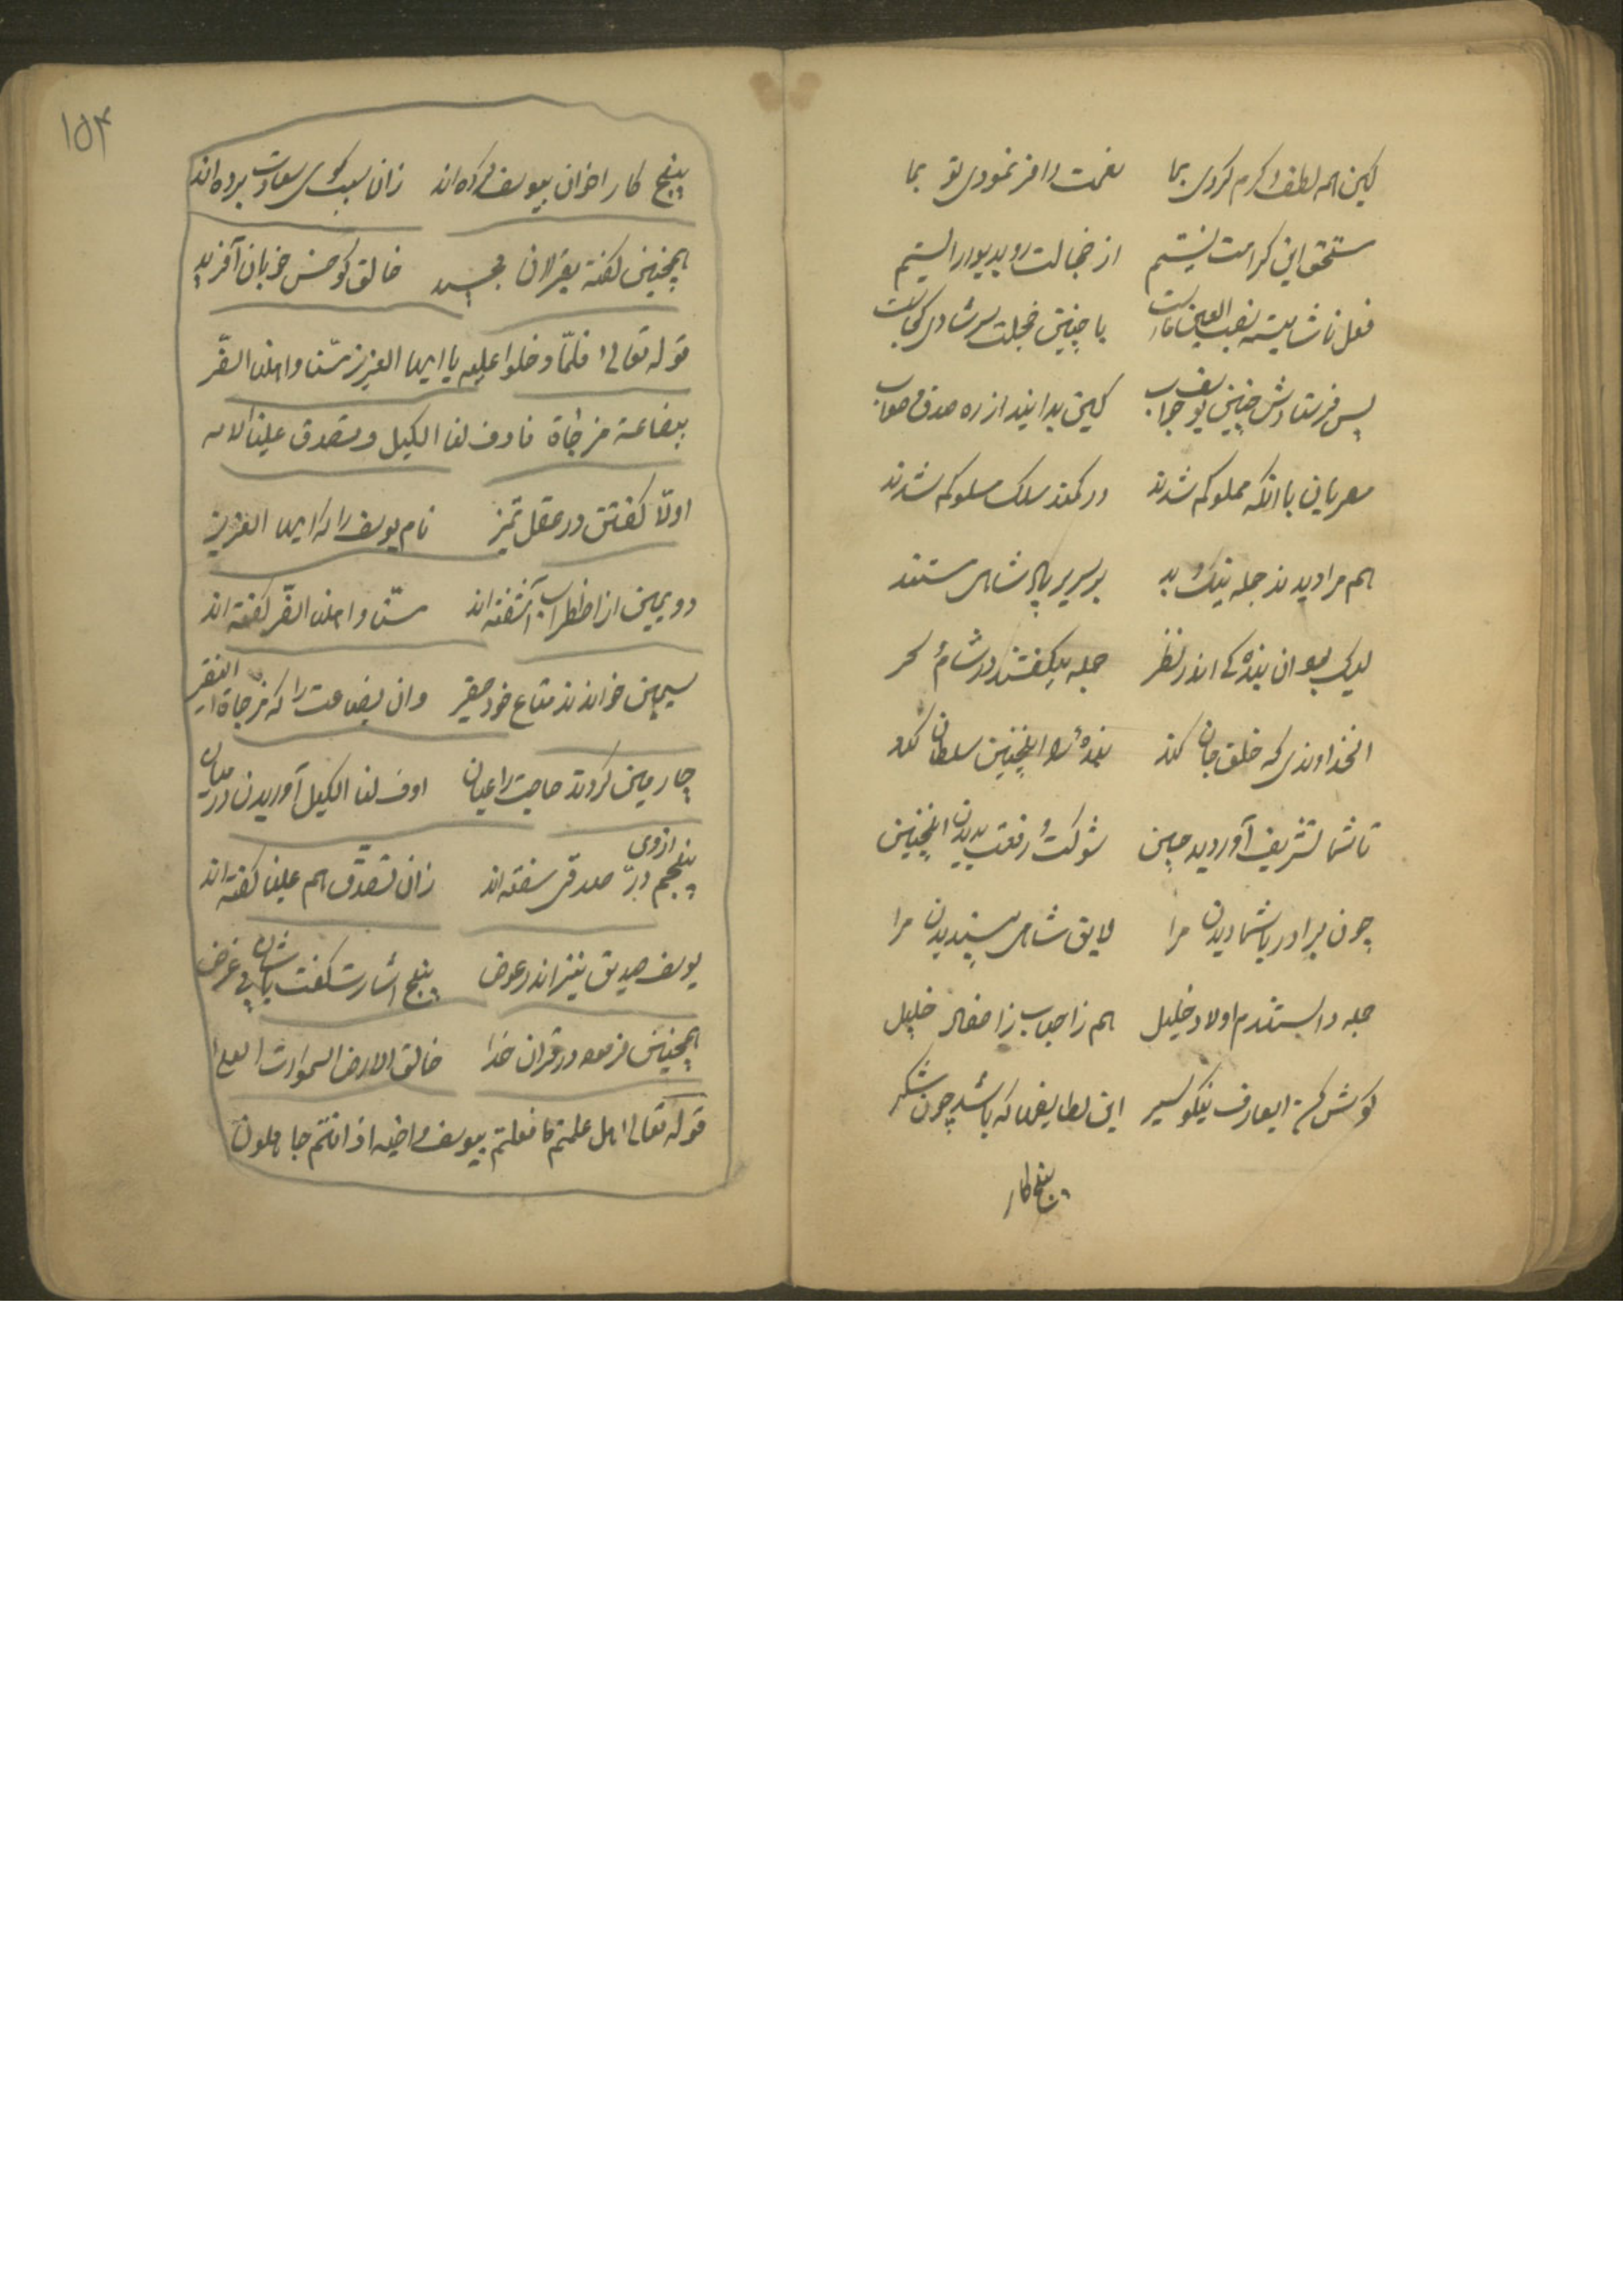 کین همه لطف و کرم کردی بما نعمت وافر نمودی تو بما
مستحق این کرامت نیستیم از خجالت رو بدیوار ایستیم
فعل ناشایسته نصب العین ماست با چنین خجلت سر شادی کجاست
پس فرستادش چنین یوسف جواب کین بدانید از ره صدق و صواب
مصریان با آنکه مملوکم شدند در کمند سلک مسلوکم شدند
هم مرا دیدند جمله نیک و بد بر سریر پادشاهی مستند
لیک بعنوان بندگی اندر نظر جمله میگفتند در شام و سحر
آنخداوندی که خلق جان کند بندهٔ را اینچنین سلطان کند
تا شما تشریف آوردید حین شوکت و رفعت بدیدن اینچنین
چون برادر با شما دیدن مرا لایق شاهی پسندیدن مرا
جمله دانستندم اولاد خلیل هم ز اصحاب ز احفاد خلیل
گوش کن ایعارف نیکو سیر این لطایفها که باشد چون شکر
پنج کار
۱۵۴
پنج کار اخوان بیوسف کرده‌اند زان سبب گوی سعادت برده‌اند
همچنین گفته بقرلان مجید خالق کو حسن خوبان آفرید
قوله تعالی فلمّا دخلوا علیه یا ایها العزیز مسّنا و اهلنا الضّر
ببضاعة مزجاة فاوف لنا الکیل و تصدق علینا الایه
اولاّ گفتن در عقل تمیز نام یوسف را که ایها العزیز
دویمین از اضطراب آشفته‌اند مسّنا و اهلنا الضّر گفته‌اند
سیمین خواندند متاع خود حقیر وان بضاعت را که مزجاة الفقیر
چارمین کردند حاجت را عیان اوف لنا الکیل آوریدن در میان
پنجم از وی درّ صدقی سفته‌اند زان تصدّق هم علینا گفته‌اند
یوسف صدیق نیز اندر عوض پنج اشارت گفت با ایشان بی غرض
همچنین فرموده در قران خدا خالق الارض السموات العلا
قوله تعالی هل علمتم ما فعلتم بیوسف و اخیه اذ انتم جاهلون